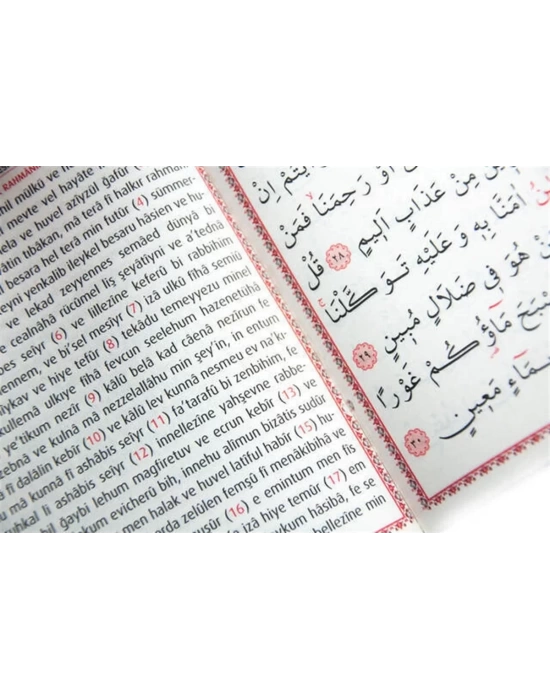 RAHMAN
hil mülkü ve
meyte vel hayâte
ve huvel azîyzul gafûr
tıbâkan, mâ terâ fî halkır rahmân
besara hel terâ min futûr (4) sümmer-
yenkalib ileykel besaru hâsien ve hu-
ve lekad zeyyennes semâed dünyâ bi
cealnâhâ rücûmel liş şeyâtîyni ve a'tednâ
seîyr (6) ve lillezîne keferû bi rabbihim
ennem, ve bi'sel mesîyr (7) izâ ulkû fîhâ semiû
ve hiye tefûr (8) tekâdu temeyyezu minel
kullemâ ulkıye fîhâ fevcun seelehum hazenetühâ
e'tikum nezîr (9) kâlû belâ kad câenâ nezîrun fe
zebnâ ve kulnâ mâ nezzelallâhu min şey'in, in entum
fî dalâlin kebîr (10) ve kâlû lev kunnâ nesmeu ev na'kı-
mâ kunnâ fî ashâbis seîyr (11) fa'tarafû bi zenbihim, fe
uhkal li ashâbis seîyr (12) innellezîne yahşevne rabbe-
bil ğaybi lehum mağfiretuv ve ecrun kebîr (13) ve
kum evicherû bih, innehu alîmun bizâtis sudûr
men halak ve huvel latîful habîr (15) hu-
arda zelûlen femşû fî menâkibihâ ve
uşûr (16) e emintum men fis
izâ hiye temûr (17) em
ykum hâsibâ, fe se
bellezîne min
اِنْ
اَوْ رَحِمَنَا فَمَنْ
مِنْ عَذَابٍ اَلٖيمٍ ٢٨ قُلْ
اٰمَنَّا بِهٖ وَعَلَيْهِ تَوَكَّلْنَا
هُوَ فٖي ضَلَالٍ مُبٖينٍ ٢٩
مَٓاؤُ۬كُمْ غَوْرًا
مَعٖينٍ ٣٠